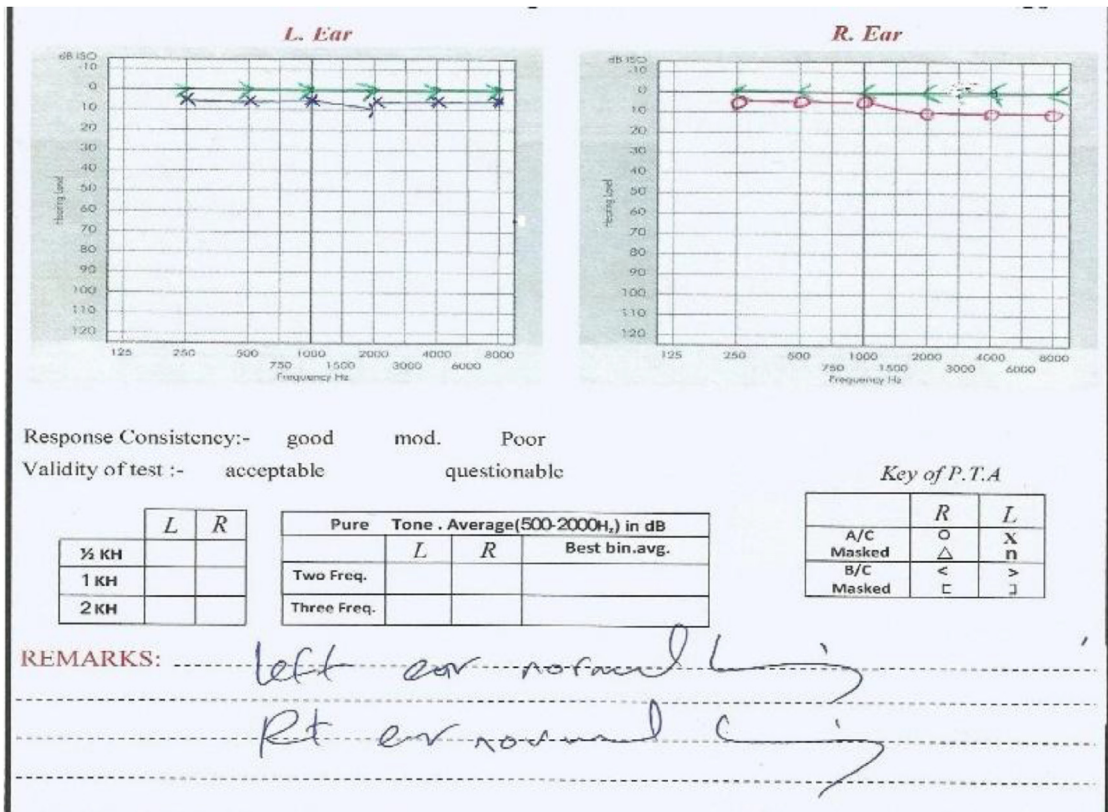 L. Ear
R. Ear
dB ISO
-10
0
10
20
30
40
50
60
70
80
90
100
110
120
Hearing Level
125 250 500 1000 2000 4000 8000
750 1500 3000 6000
Frequency Hz
dB ISO
-10
0
10
20
30
40
50
60
70
80
90
100
110
120
Hearing Level
125 250 500 1000 2000 4000 8000
750 1500 3000 6000
Frequency Hz
Response Consistency:- good mod. Poor
Validity of test :- acceptable questionable
Key of P.T.A
L R
½ KH
1 KH
2 KH
Pure Tone . Average(500-2000Hz) in dB
L R Best bin.avg.
Two Freq.
Three Freq.
R L
A/C O X
Masked △ n
B/C < >
Masked ⊏ ⊐
REMARKS: left ear normal
Rt ear normal